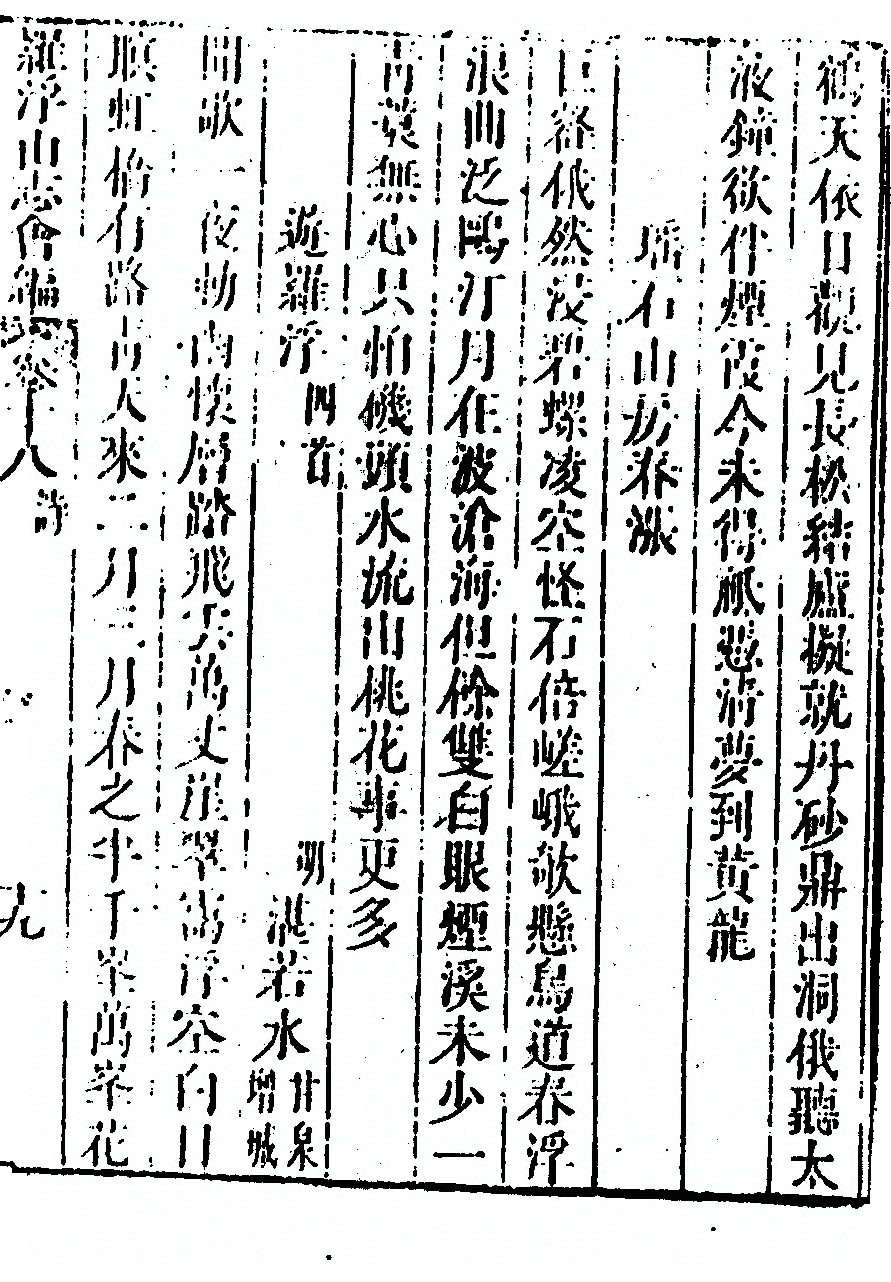 鶴天依日觀見長松結廬擬就丹砂鼎出洞俄聽太
液鐘欲伴煙霞今未得祇愁清夢到黃龍
瑤石山房春漲
巨容俄然沒碧螺凌空怪石倍嵯峨欹懸鳥道春浮
浪曲泛鷗汀月在波滄海但餘雙白眼煙溪未少一
青蓑無心只怕磯頭水流出桃花事更多
遊羅浮四首 明湛若水甘泉增城
聞歌一夜動南 層踏飛雲萬丈崖翠 浮空白日
瞑虹橋有路古人來二月三月春之半千峯萬峯花
羅浮山志會編 卷十八 詩 九